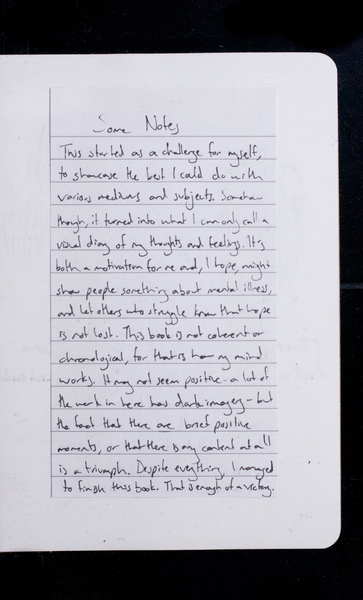 Some Notes
This started as a challenge for myself,
to showcase the best I could do with
various mediums and subjects. Somehow
though, it turned into what I can only call a
visual diary of my thoughts and feelings. It's
both a motivation for me and, I hope, might
show people something about mental illness,
and let others who struggle know that hope
is not lost. This book is not coherent or
chronological, for that is how my mind
works. It may not seem positive - a lot of
the work in here has dark imagery - but
the fact that there are brief positive
moments, or that there is any content at all
is a triumph. Despite everything, I managed
to finish this book. That is enough of a victory.